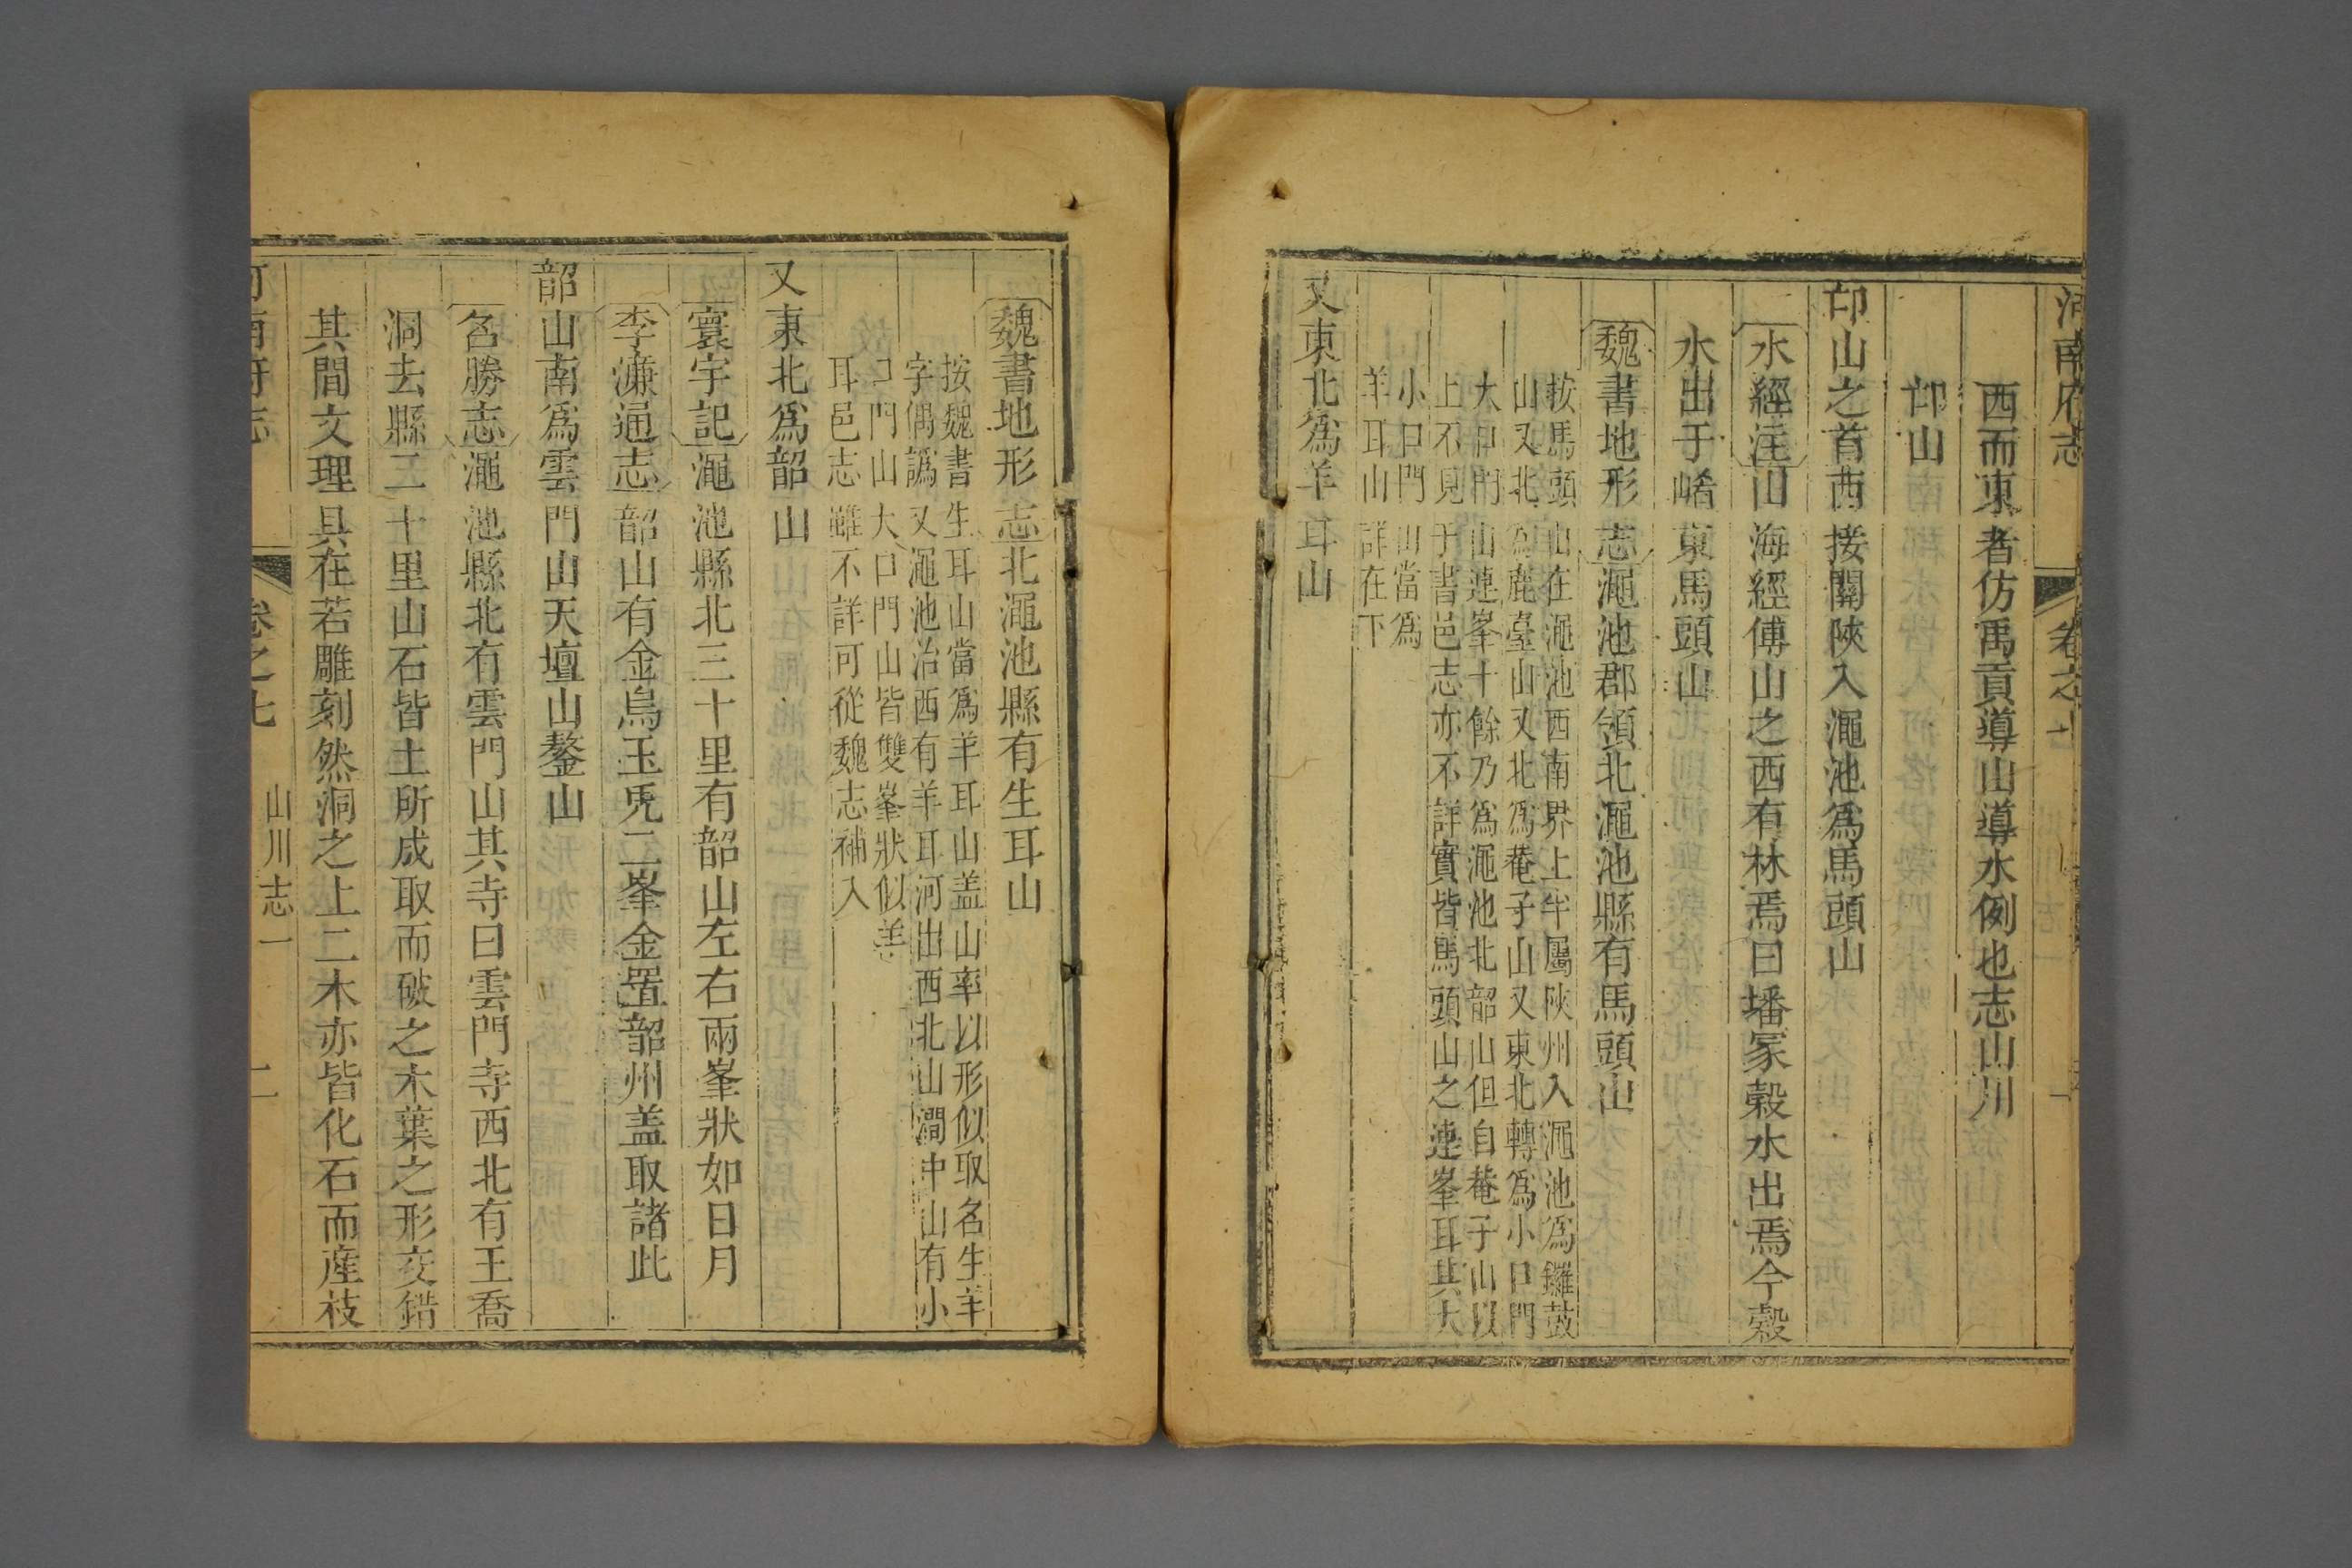 河南府志 卷之七
西而東者仿禹貢導山導水例也志山川
邙山
邙山之首西接關陝入澠池爲馬頭山
水經注山海經傅山之西有林焉曰墦冢穀水出焉今穀
水出于崤東馬頭山
魏書地形志澠池郡領北澠池縣有馬頭山
按馬頭山在澠池西南界上半屬陜州入澠池爲鑼鼓
山又北爲鹿臺山又北爲菴子山又東北轉爲小口門
大口門山連峯十餘乃爲澠池北韶山但自菴子山以
上不見于書邑志亦不詳實皆馬頭山之連峯耳其大
小口門山當爲
羊耳山詳在下
又東北爲羊耳山
魏書地形志北澠池縣有生耳山
按魏書生耳山當爲羊耳山盖山率以形似取名生羊
字偶譌又澠池治西有羊耳河出西北山澗中山有小
口門山大口門山皆雙峯狀似羊
耳邑志雖不詳可從魏志補入
又東北爲韶山
寰宇記澠池縣北三十里有韶山左右兩峯狀如日月
李濂通志韶山有金烏玉兎二峯金置韶州盖取諸此
韶山南爲雲門山天壇山鏊山
名勝志澠池縣北有雲門山其寺曰雲門寺西北有王喬
洞去縣三十里山石皆土所成取而破之木葉之形交錯
其間文理具在若雕刻然洞之上二木亦皆化石而産枝
河南府志 卷之七 山川志一 二